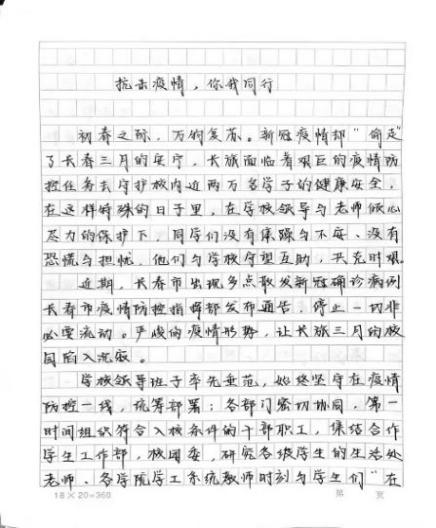 抗击疫情，你我同行
初春之际，万物复苏。新冠疫情却"偷走"
了长春三月的安宁，长旅面临着艰巨的疫情防
控任务去守护校内近两万名学子的健康安全，
在这样特殊的日子里，在学校领导与老师倾心
尽力的保护下，同学们没有焦躁与不安、没有
恐慌与担忧，他们与学校守望互助，共克时艰
近期，长春市出现多点散发新冠确诊病例
长春市疫情防控指挥部发布通告，停止一切非
必要流动。严峻的疫情形势，让长旅三月的校
园陷入沉寂。
学校领导班子率先垂范，始终坚守在疫情
防控一线，统筹部署；各部门密切协同，第一
时间组织符合入校条件的干部职工，集结合作
学生工作部，校团委，研究各级学生的生活处
老师、各学院学工系统教师时刻与学生们"在
18×20=360
第 页